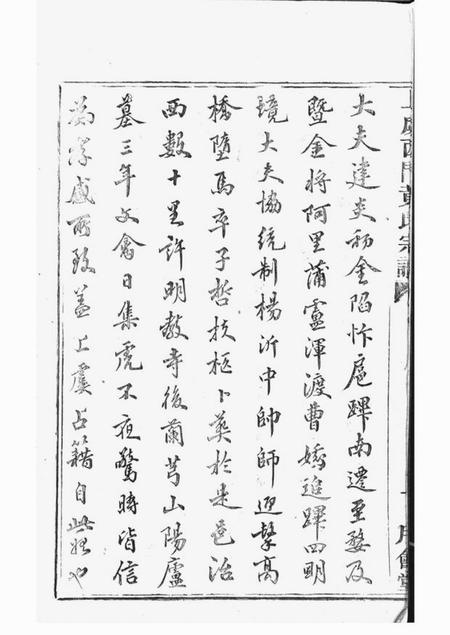 大夫建炎初金陷忭扈蹕南遷至婺及
暨金將阿里蒲盧渾渡曹娥追蹕四明
境大夫協統制楊沂中帥師迎擊高
橋墮馬卒子哲扶柩卜葬於是邑治
西數十里許明教寺後蘭芎山陽廬
墓三年文禽日集虎不夜驚時皆信
為孝感所致蓋上虞占籍自此始也
上虞西門黃氏宗譜